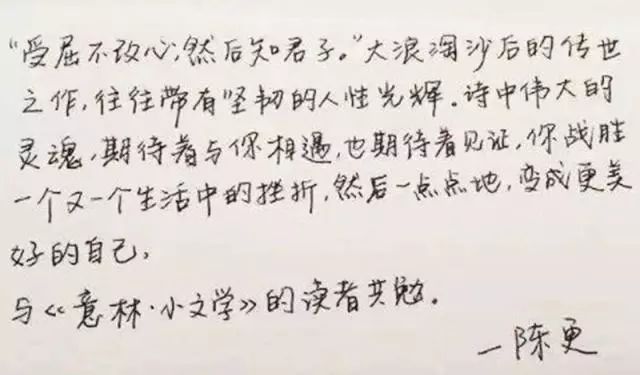 “受屈不改心,然后知君子。”大浪淘沙后的传世
之作,往往带有坚韧的人性光辉.诗中伟大的
灵魂,期待着与你相遇,也期待着见证,你战胜
一个又一个生活中的挫折,然后一点点地,变成更美
好的自己,
与《意林·小文学》的读者共勉.
—陈更